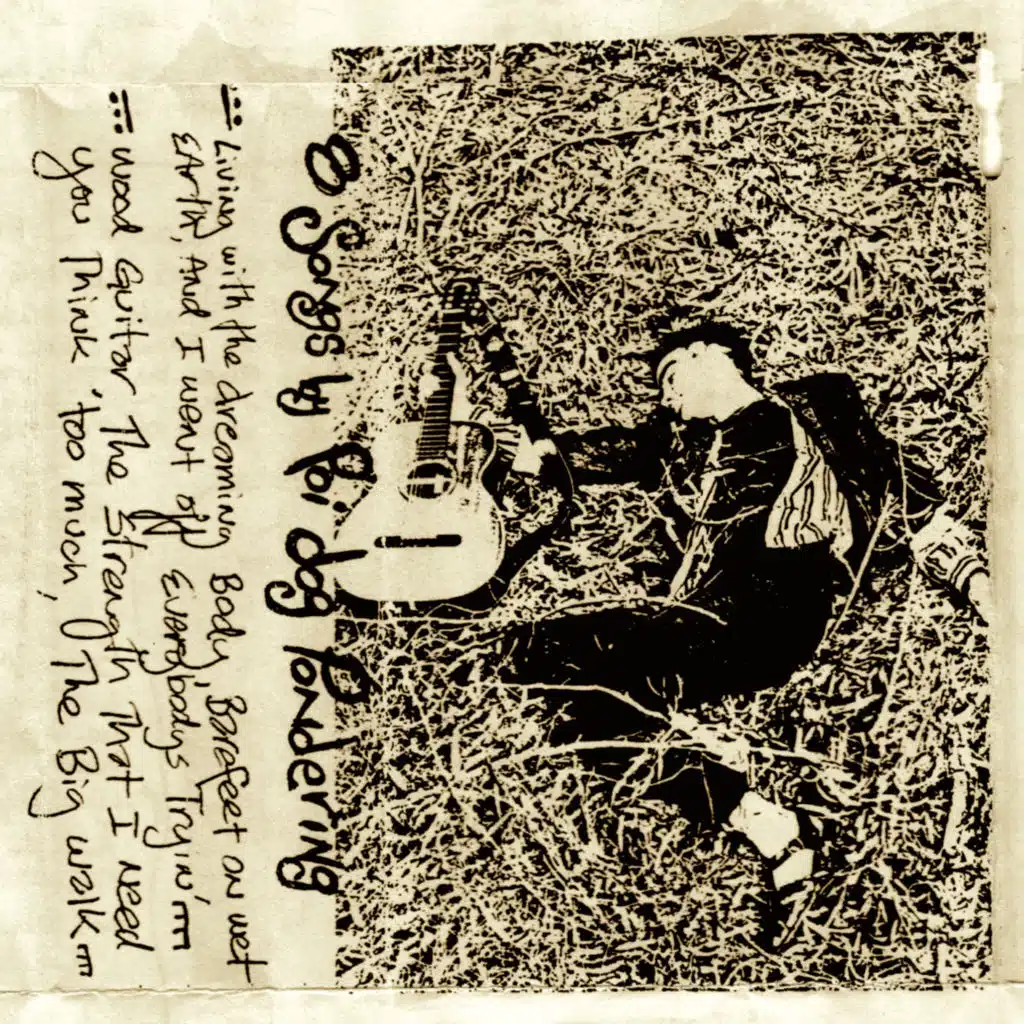 8 Songs by Poi dog Pondering
Living with the dreaming Body, Barefeet on wet
EArth, And I went off Everybodys Tryin'
wood Guitar, The Strength That I need
you Think 'too much, The Big walk